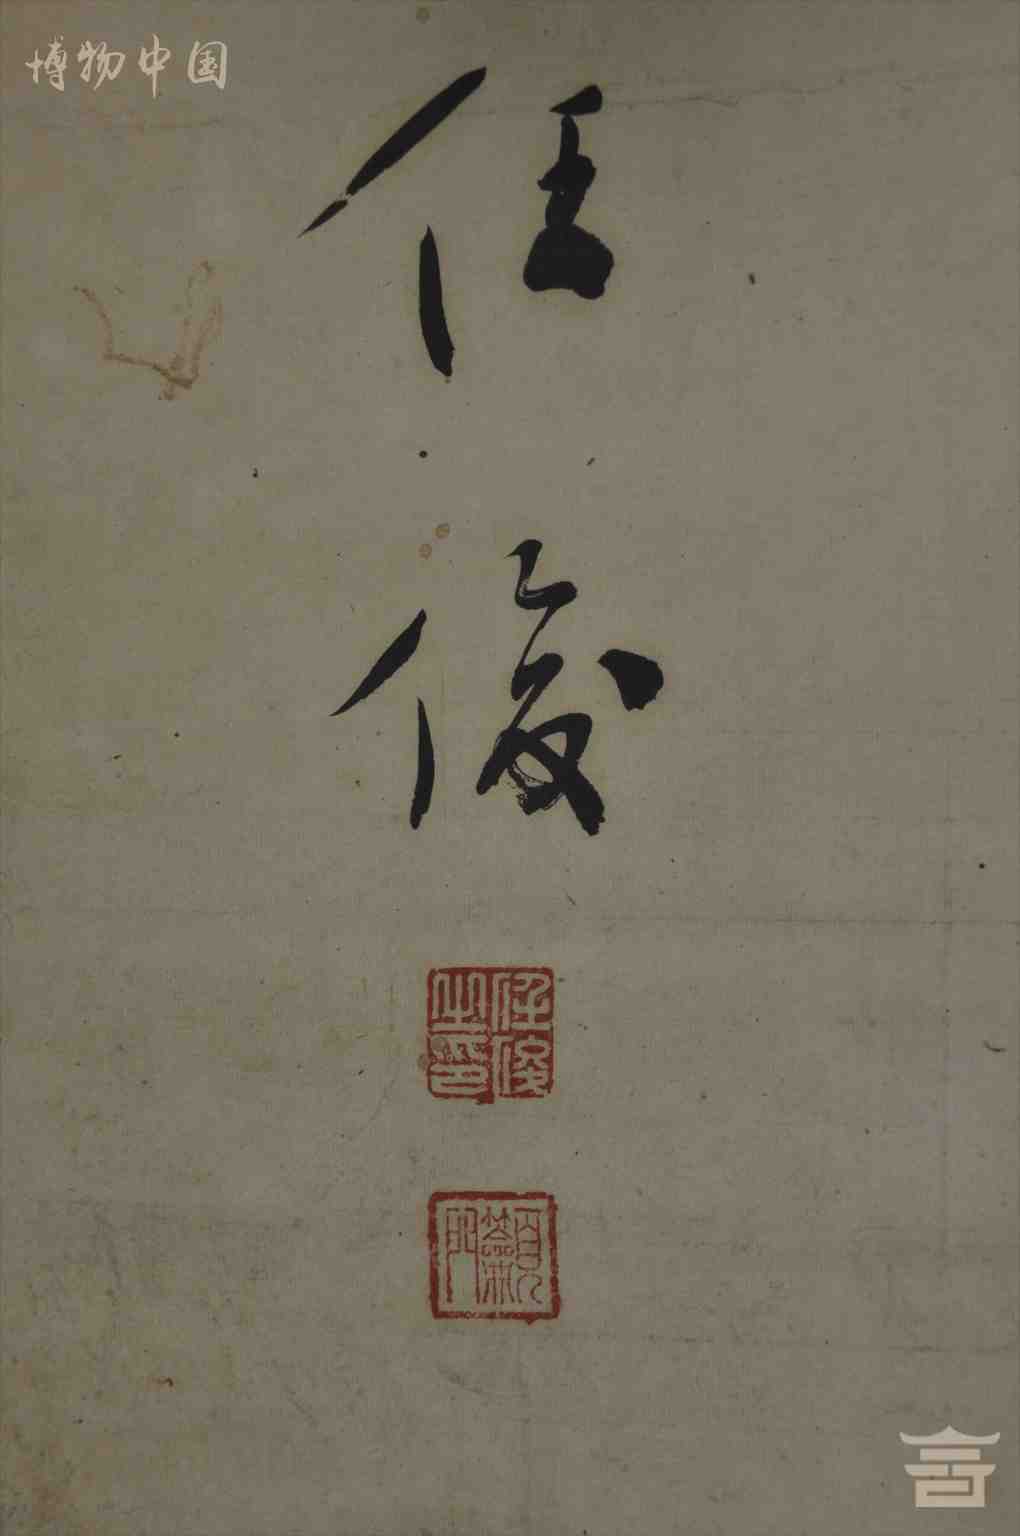 博物中国
任
俊
任俊
之印